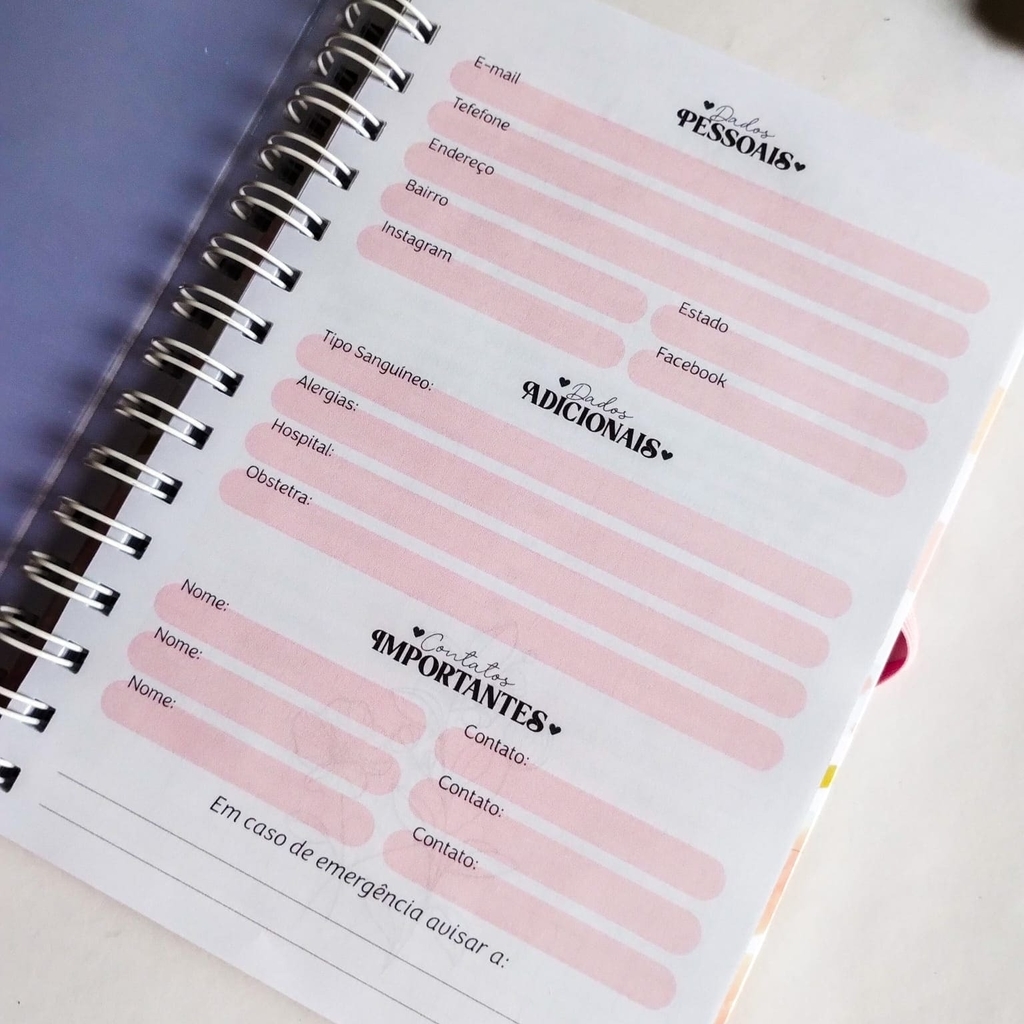 Dados
PESSOAIS
E-mail
Tefefone
Endereço
Bairro
Estado
Instagram
Facebook
Dados
ADICIONAIS
Tipo Sanguíneo:
Alergias:
Hospital:
Obstetra:
Contatos
IMPORTANTES
Nome:
Contato:
Nome:
Contato:
Nome:
Contato:
Em caso de emergência avisar a: